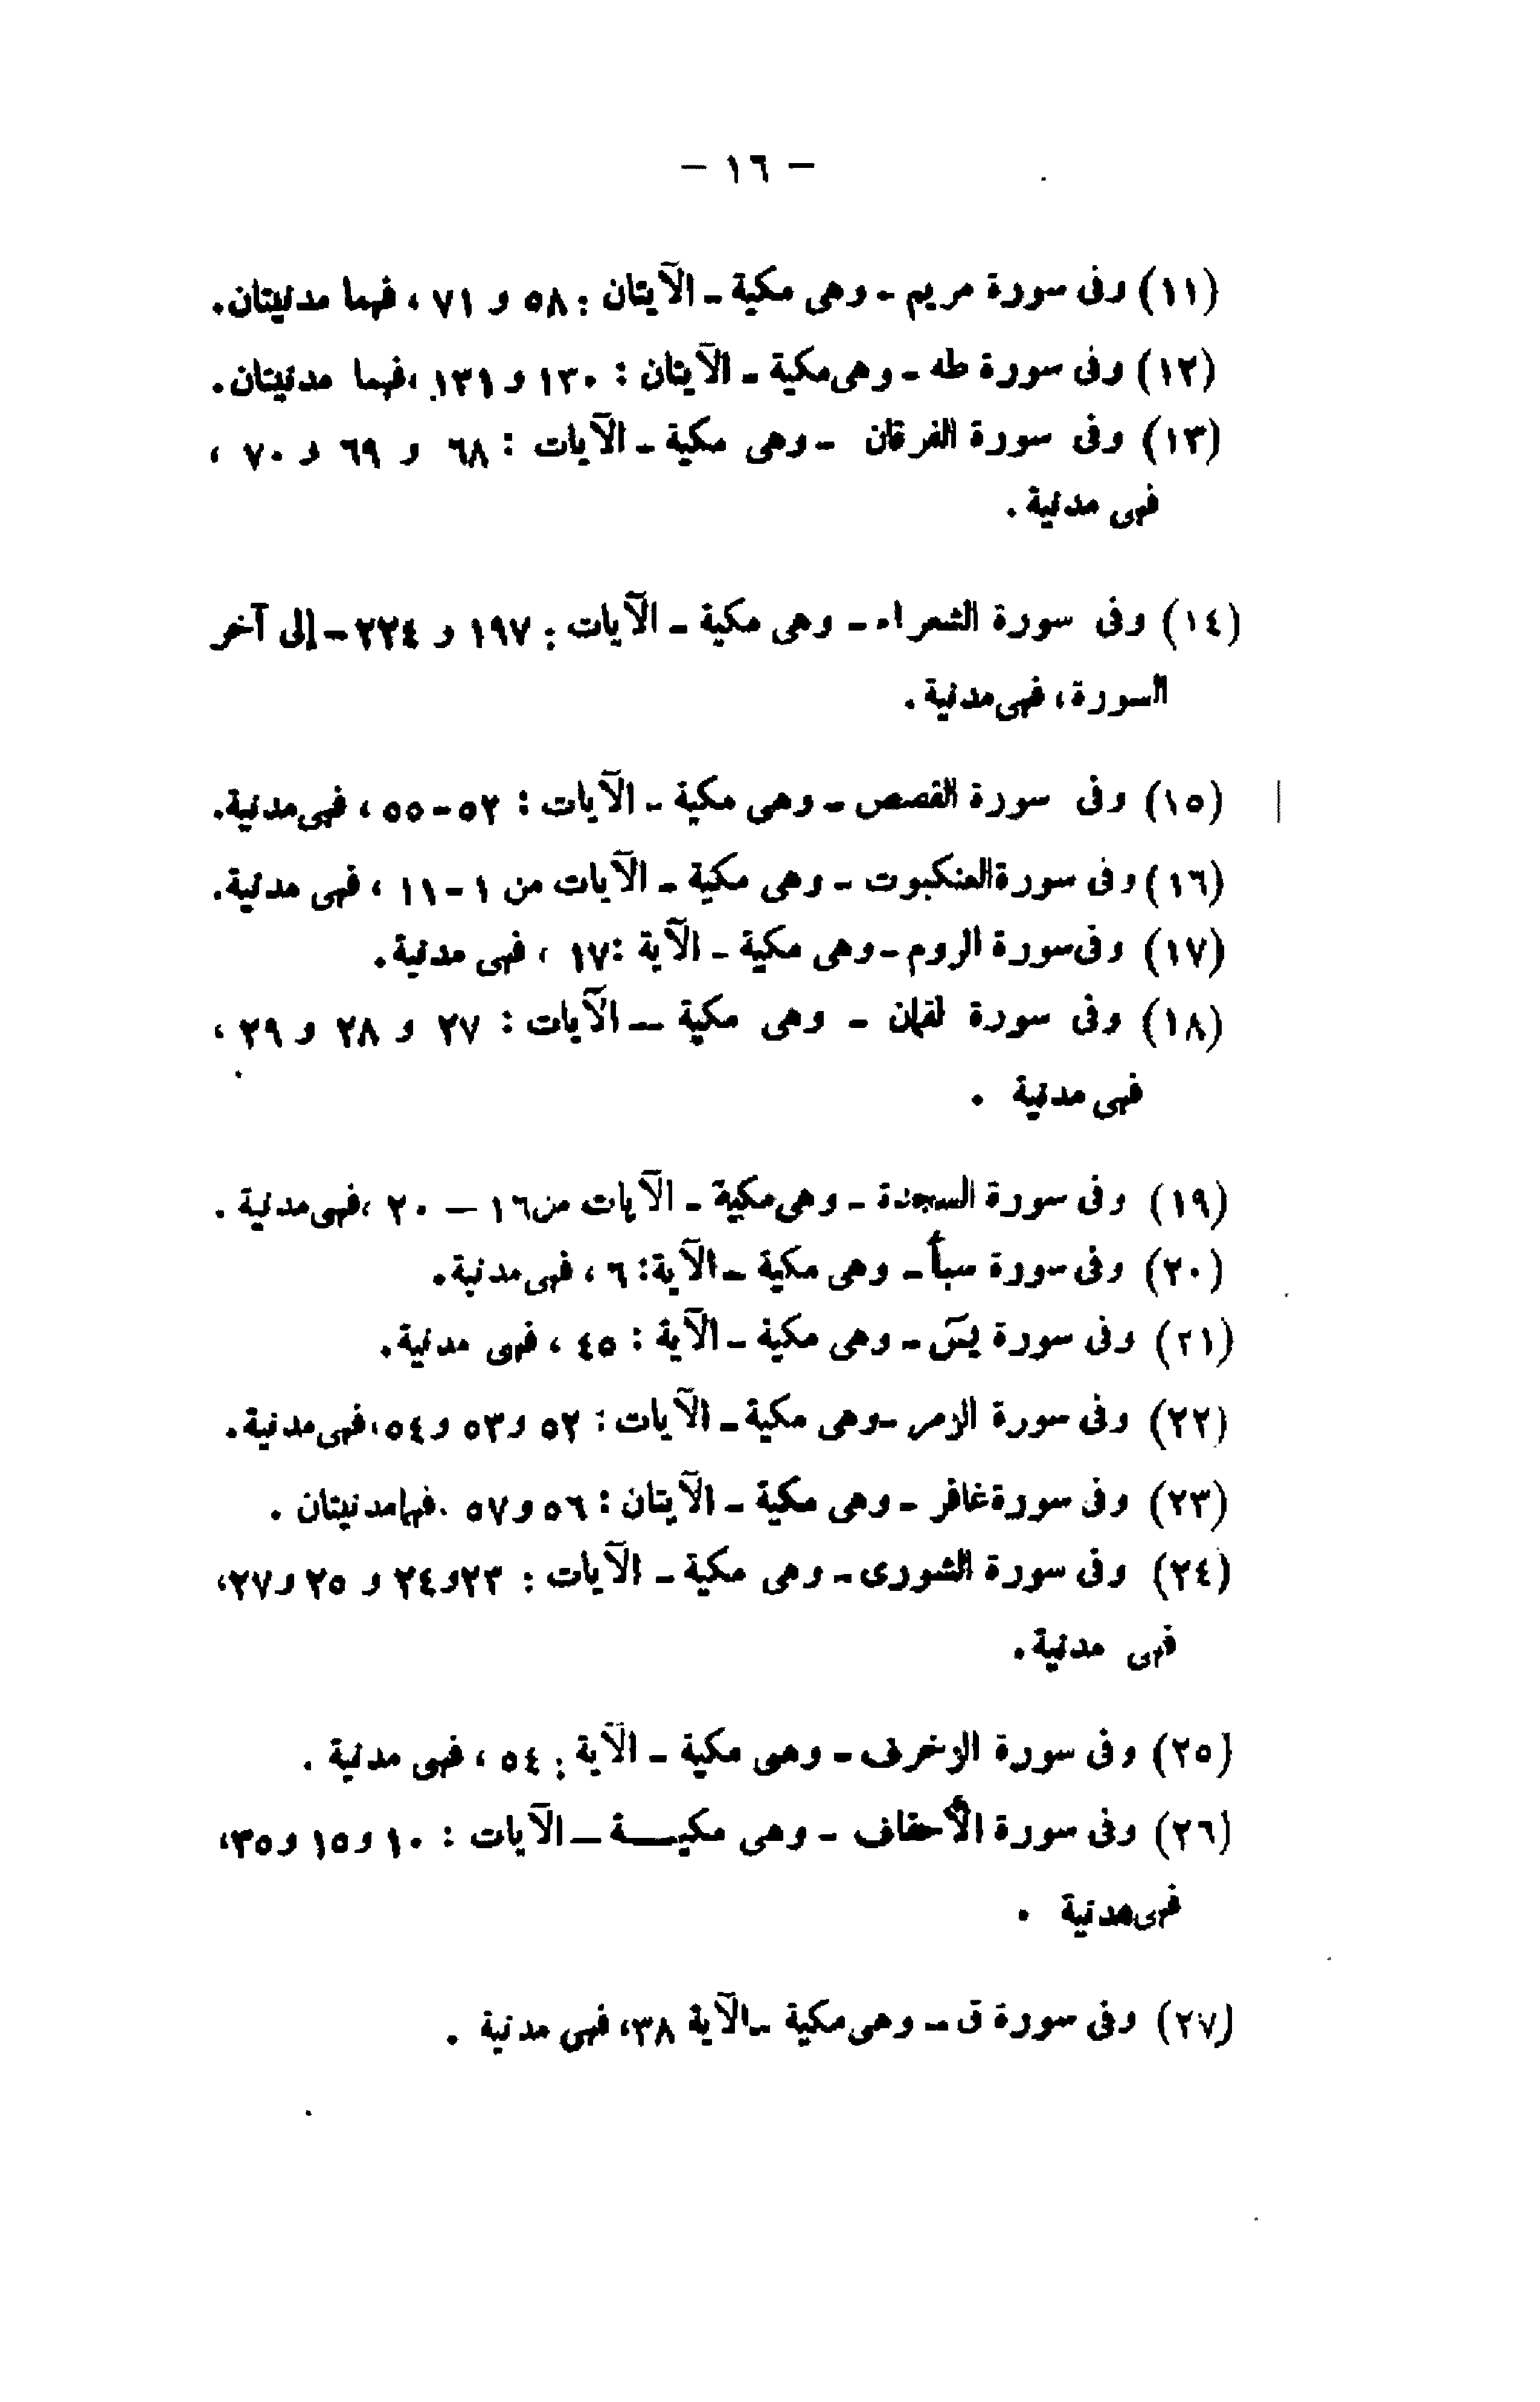 – ١٦ –
(١١) وفى سورة مريم – وهى مكية – الآيتان : ٥٨ و ٧١ ، فهما مدنيتان.
(١٢) وفى سورة طه – وهى مكية – الآيتان : ١٣٠ و ١٣١ ،فهما مدنيتان.
(١٣) وفى سورة الفرقان – وهى مكية – الآيات : ٦٨ و ٦٩ و ٧٠ ،
فهى مدنية .
(١٤) وفى سورة الشعراء – وهى مكية – الآيات : ١٩٧ و ٢٢٤ – إلى آخر
السورة ، فهى مدنية .
(١٥) وفى سورة القصص – وهى مكية – الآيات : ٥٢ – ٥٥ ، فهى مدنية.
(١٦) وفى سورة العنكبوت – وهى مكية – الآيات من ١ – ١١ ، فهى مدنية.
(١٧) وفى سورة الروم – وهى مكية – الآية :١٧ ، فهى مدنية.
(١٨) وفى سورة لقمان – وهى مكية – الآيات : ٢٧ و ٢٨ و ٢٩ ،
فهى مدنية .
(١٩) وفى سورة السجدة – وهى مكية – الآيات من ١٦ – ٢٠ ،فهى مدنية .
(٢٠) وفى سورة سبأ – وهى مكية – الآية: ٦ ، فهى مدنية.
(٢١) وفى سورة يسٓ – وهى مكية – الآية : ٤٥ ، فهى مدنية.
(٢٢) وفى سورة الزمر – وهى مكية – الآيات : ٥٢ و٥٣ و٥٤،فهى مدنية.
(٢٣) وفى سورة غافر – وهى مكية – الآيتان : ٥٦ و٥٧ .فهما مدنيتان .
(٢٤) وفى سورة الشورى – وهى مكية – الآيات : ٢٣و٢٤ و ٢٥ و٢٧،
فهى مدنية.
(٢٥) وفى سورة الزخرف – وهى مكية – الآية : ٥٤ ، فهى مدنية .
(٢٦) وفى سورة الأحقاف – وهى مكيـــة – الآيات : ١٠ و١٥ و٣٥،
فهى مدنية .
(٢٧) وفى سورة ق – وهى مكية – الآية ٣٨، فهى مدنية .